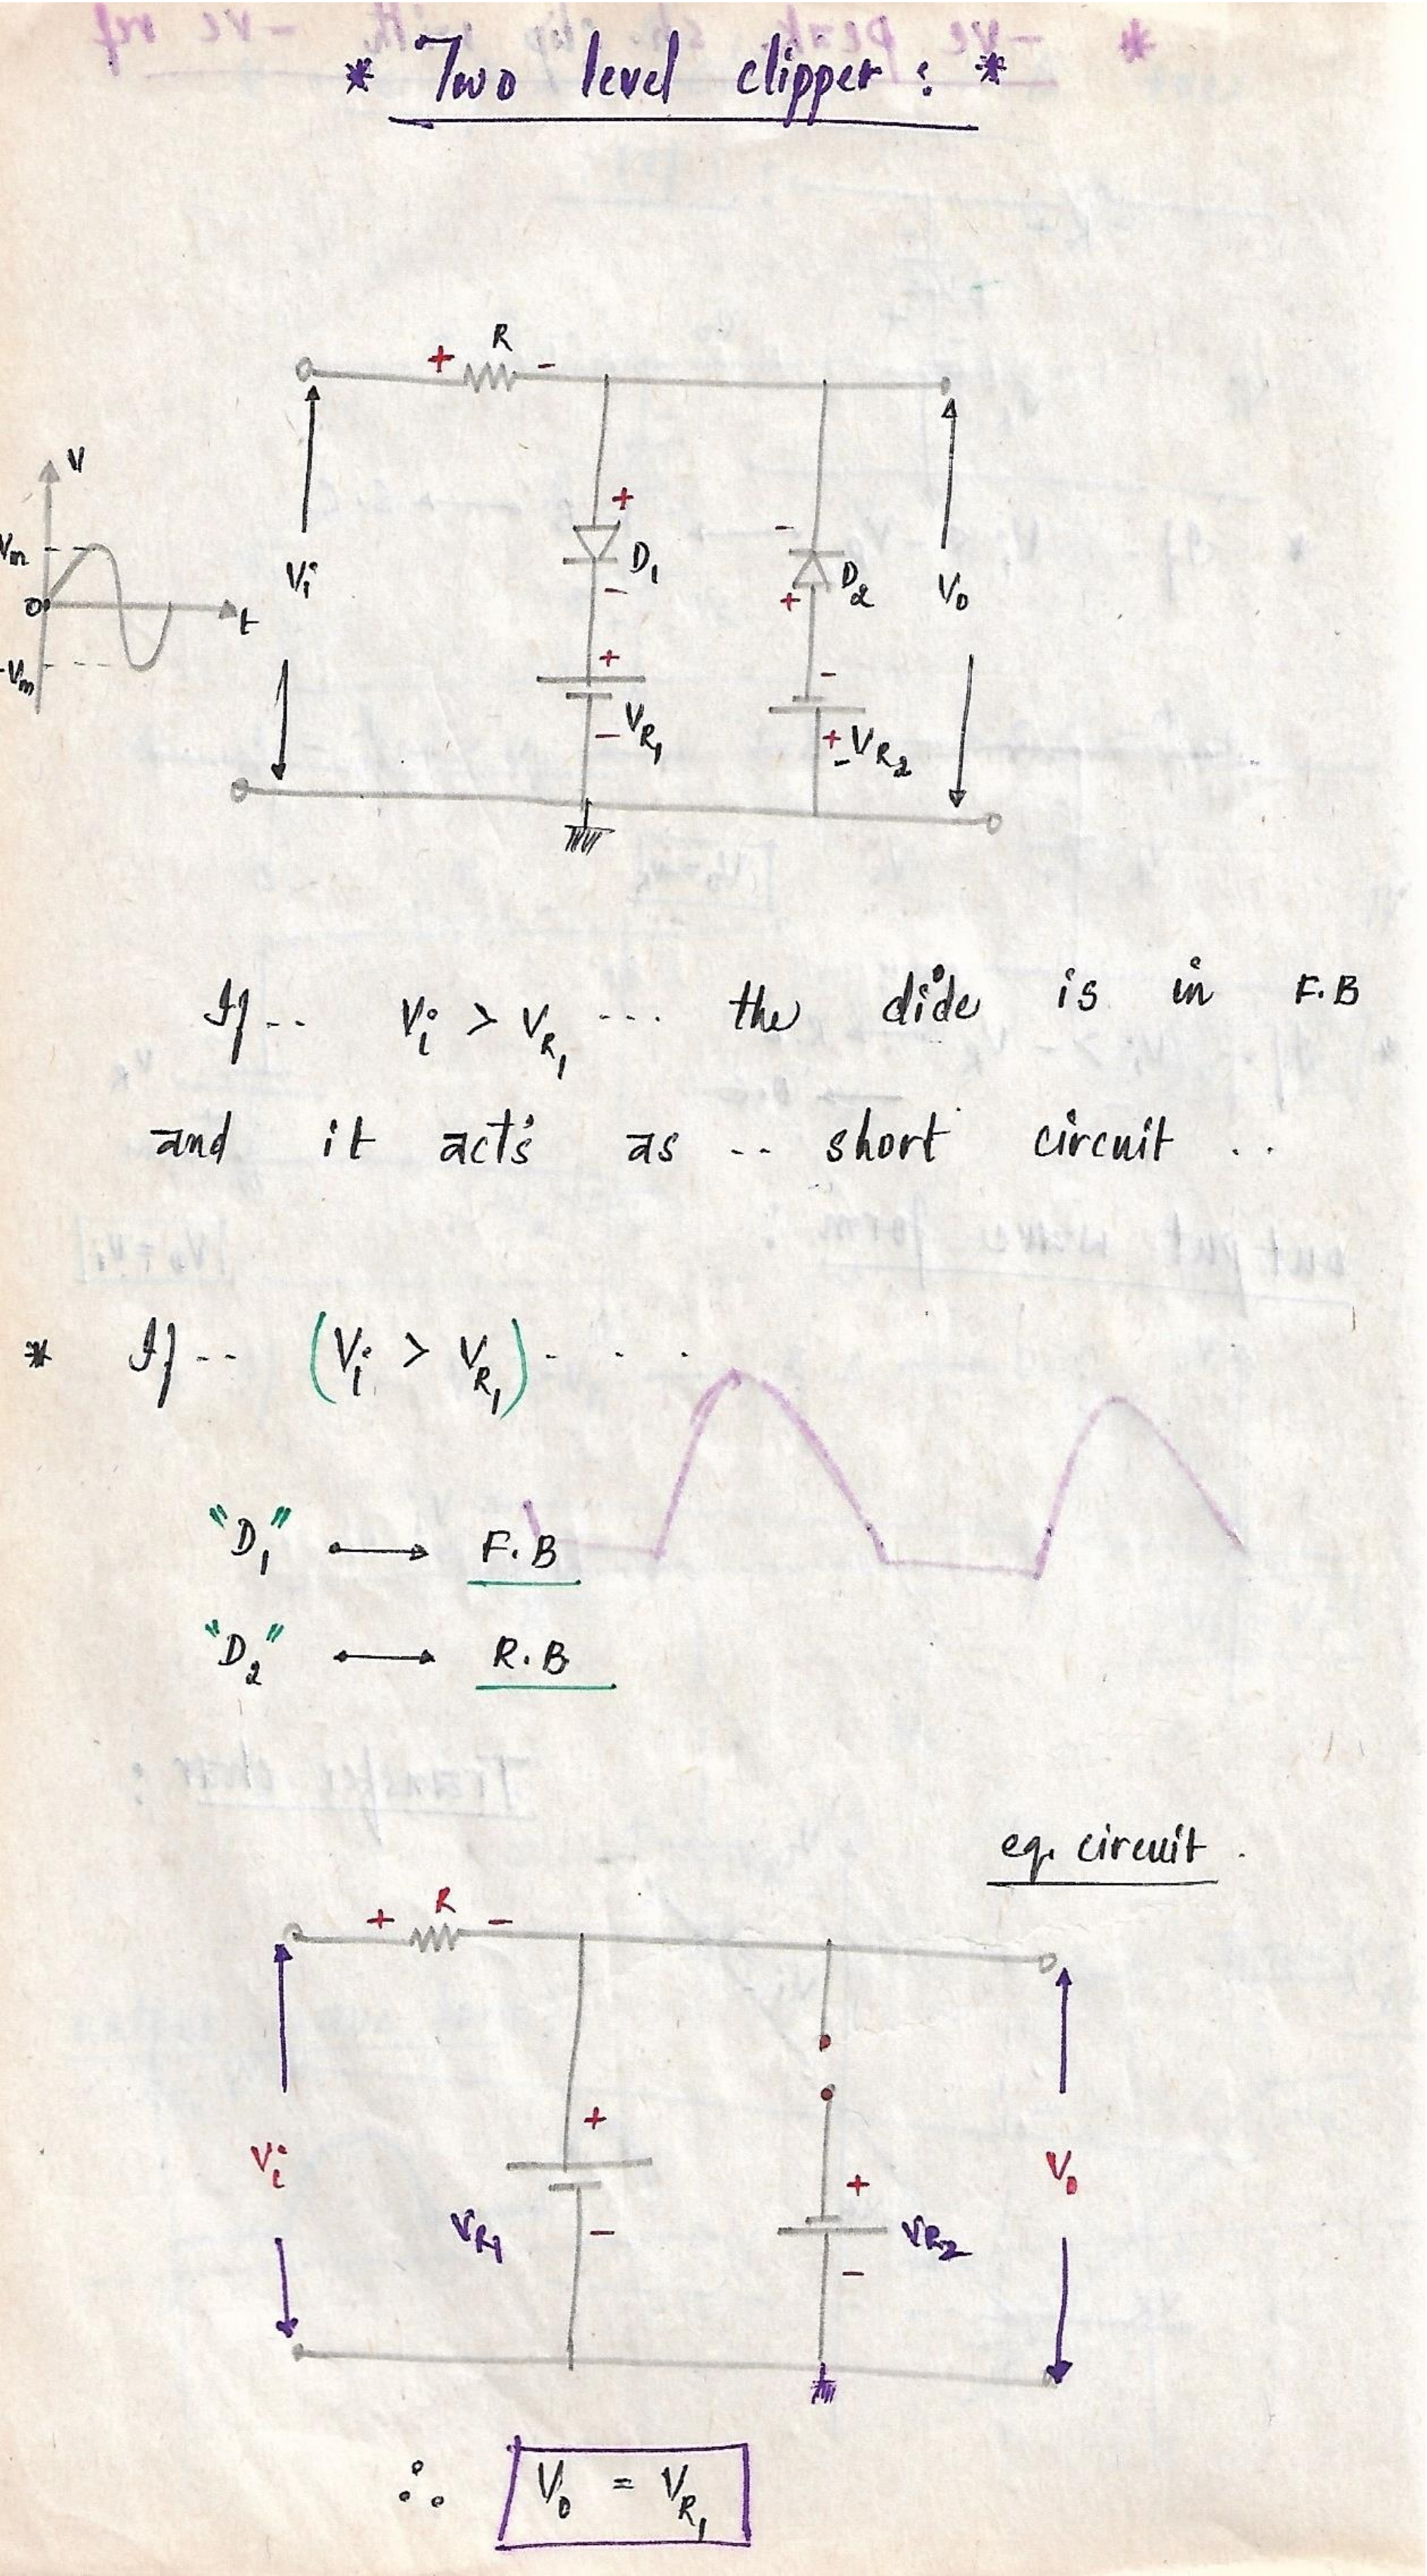 * Two level clipper : *
R
+ -
V
Vm
0
-Vm
t
Vi
+
D1
-
+
VR1
-
-
D2
+
-
+
-VR2
Vo
If -- Vi > VR1 ---- the dide is in F.B
and it act's as -- short circuit ..
* If -- (Vi > VR1) - - - -
"D1" → F.B
"D2" ↔ R.B
eq. circuit .
+ R -
Vi
+
VR1
-
+
VR2
-
Vo
∴ Vo = VR1